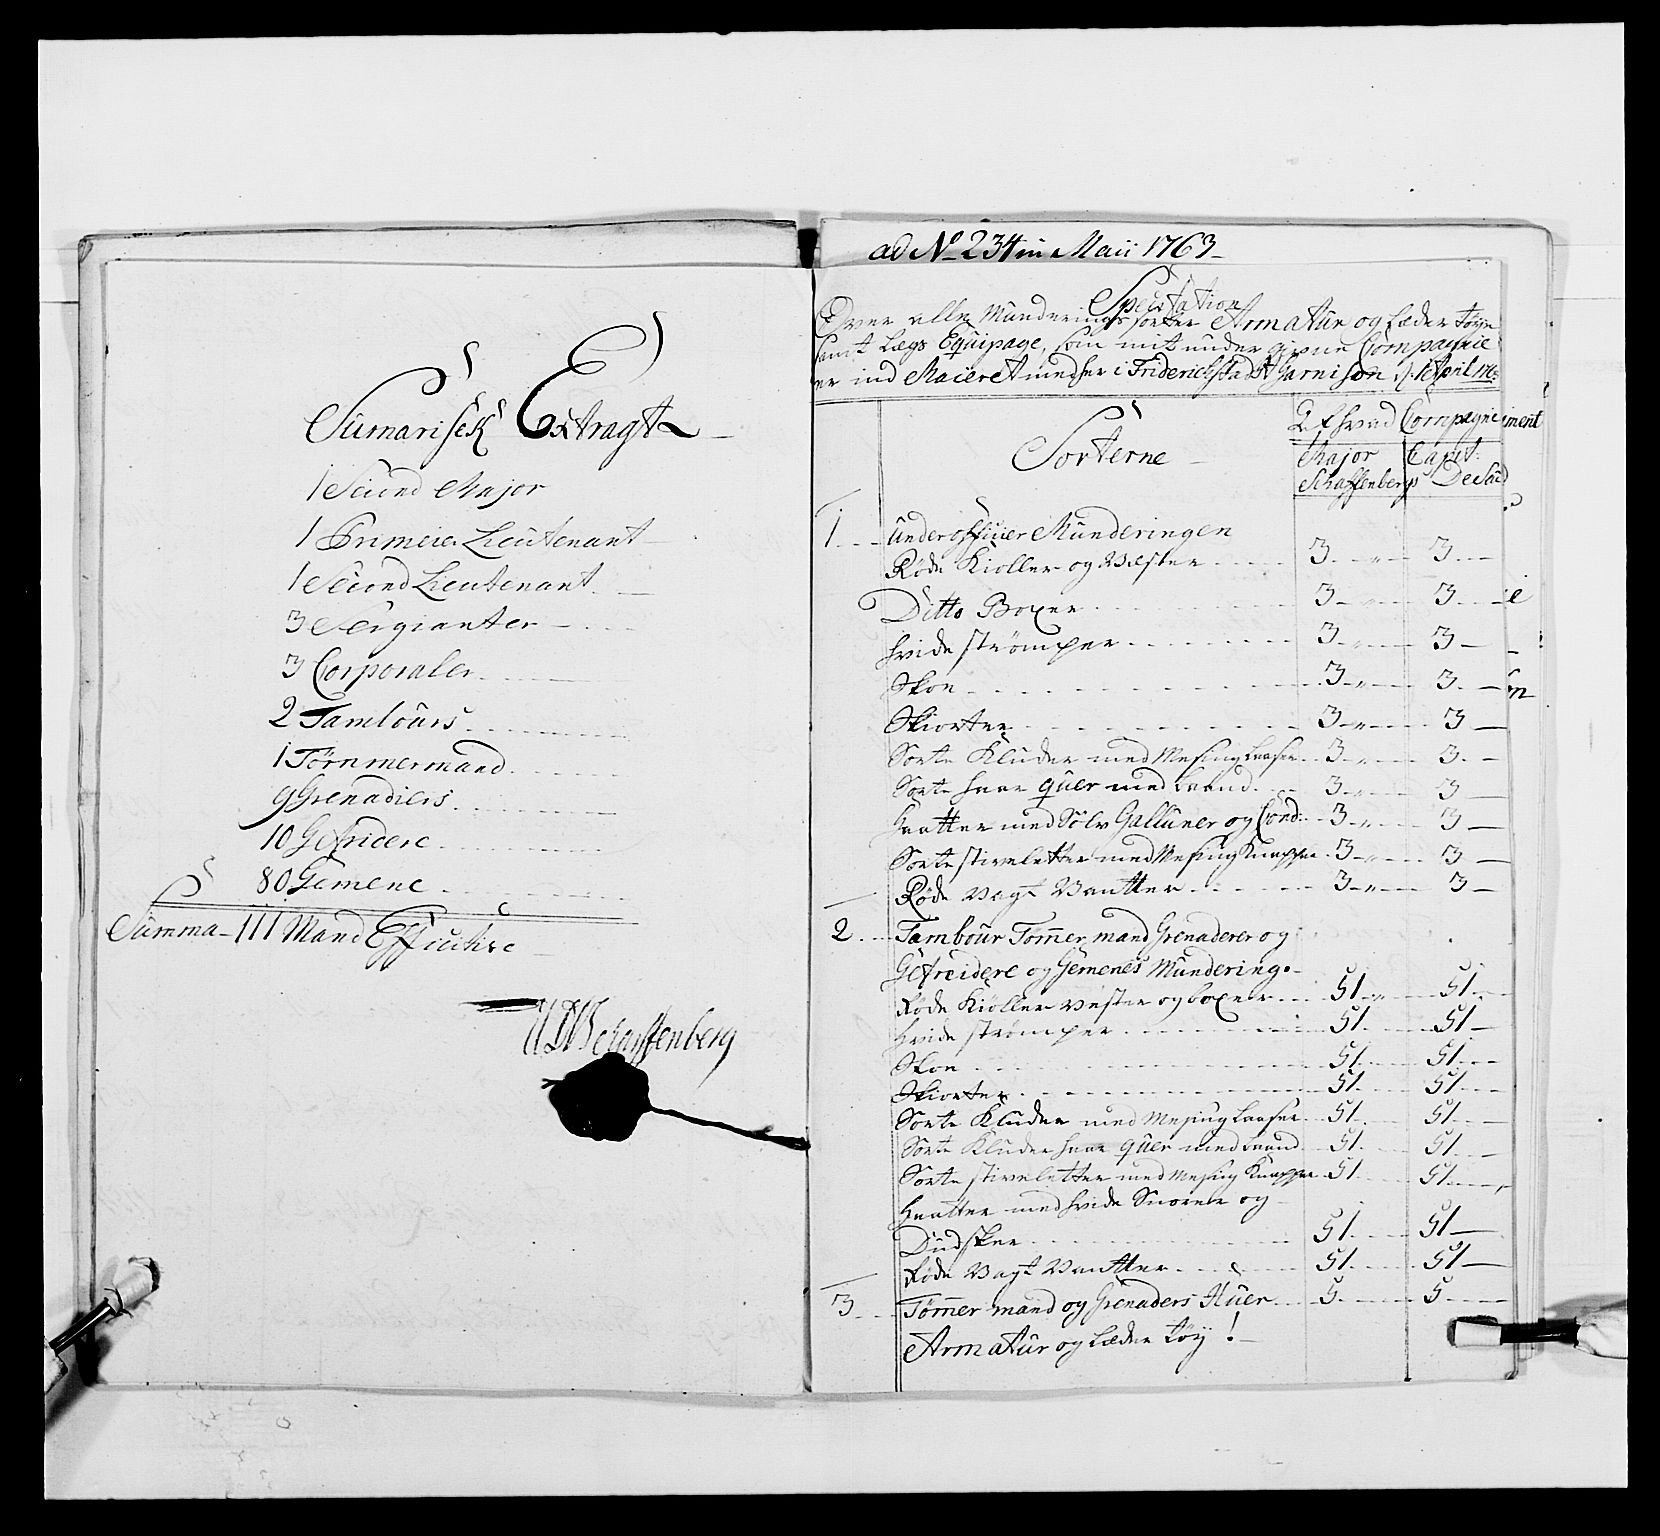 Sumarisck Extragt
1 Second Major
1 Premier Lieutenant
1 Second Lieutenant
3 Sergianter
3 Corporaler
2 Tambours
1 Tømmermand
9 Grenadiers
10 Gefridere
80 Gemene
Summa 111 Mand Effective
Schaffenberg
ad No 234 in Maii 1763
Specification
Over alle Munderings sorter Armatur og Læder tøyn
samt Lægs Equipage, som mit under givne Compagnie
er ind Maieret med her i Friderichstadt Garnison d. 1 April
Sorterne
Af hvad Compagnie
Major Schaffenbergs
Capit: De Sud
1 Underofficier Munderingen
Røde Kioller og Vester 3 3
Ditto Boxer 3 3
hvide strømper 3 3
Skoe 3 3
Skiorter 3 3
Sorte Kluder med Mesing Laaser 3 3
Sorte haar quer med baand 3 3
Hatter med Sølv Galluner og Cord: 3 3
Sorte stiveletter med Mesing Knapper 3 3
Røde Vagt Vantter 3 3
2 Tambour Tømmer mand Grenaderer og
Gefreidere og Gemenes Mundering
Røde Kioller vester og boxer 51 51
Hvide strømper 51 51
Skoe 51 51
Skiorter 51 51
Sorte Kluder med Mesing Laaser 51 51
Sorte Kluder haar quer med baand 51 51
Sorte stiveletter med Mesing Knapper 51 51
Hatter med hvide Snorer og
Dudsker 51 51
Røde Vagt Vantter 51 51
3 Tømmer mand og Grenaders Huer 5 5
Armatur og Læder tøy!